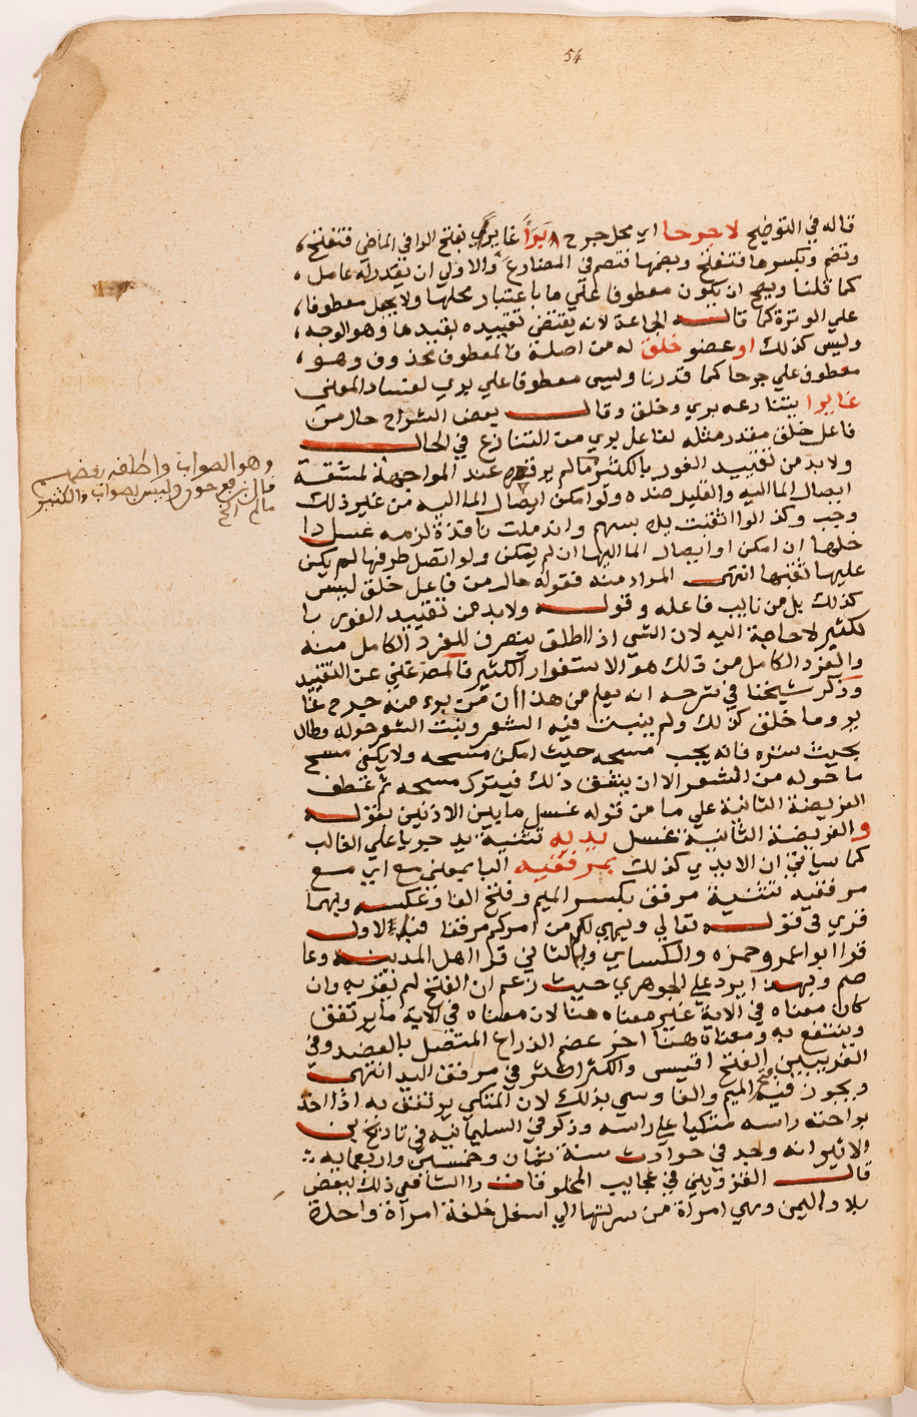 54
قاله في التوضيح لا جرحا اي محل جرح برأ غايرا بفتح الرا في الماضي فتفتح
وتضم وبكسرها فتفتح وبضمها فتضم في المضارع والاولي ان يقدر له عامل
كما قلنا ويصح ان يكون معطوفا علي ما باعتبار محلها ولا يجعل معطوفا
علي الوترة كما قالـــه الجماعة لانه يقتضي تقييده بقيدها وهو الوجه
وليس كذلك او عضو خلق له من اصله فالمعطوف محذوف وهو
معطوف علي جرحا كما قدرنا وليس معطوفا علي بري لفساد المعني
غايرا يتنازعه بري وخلق وقالـــ بعض الشراح حال من
فاعل خلق مقدر مثله لفاعل بري من التنازع في الحالـــ
ولا بد من تقييد الغور بالكثير ما لم يرتفع عند المواجهة لمشقة
ايصال الما اليه والقليل ضده ولو امكن ايصال الما اليه من غير ذلك
وجب وكذ الو اثقبت يده بسهم واندملت نافذة لزمه غسل دا
خلها ان امكن او ايصال الما اليها ان لم يمكن ولو اتصل طرفها لم يكن
عليها ثقبها انتهى المراد منه فقوله حال من فاعل خلق ليس
كذلك بل من نايب فاعله وقولـــه ولا بد من تقييد الغور با
لكثير لا حاجة اليه لان الشي اذا اطلق ينصرف للفرد الكامل منه
والفرد الكامل من ذلك هو الاستغوار الكثير فالمص غني عن التقييد
وذكر شيخنا في شرحه انه يعلم من هذا ان من برء منه جرح غا
ير وما خلق كذلك ولم ينبت فيه الشعر ونبت الشعر حوله وطال
بحيث ستره فانه يجب مسحه حيث امكن مسحه ولا يكفي مسح
ما حوله من الشعر الا ان يشق ذلك فيترك مسحه ثم عطف
الفريضة الثانية علي ما من قوله غسل ما بين الاذنين بقولـــه
والفريضة الثانية غسل يديه تثنية يد جريا علي الغالب
كما سياتي ان الايدي كذلك بمرفقيه البا بمعني مع اي مع
مرفقيه تثنية مرفق بكسر الميم وفتح الفا وعكسه وبهما
قري في قولـــه تعالي ويهيئ لكم من امركم مرفقا فبالاولـــ
قرا ابو عمرو وحمزه والكسايي وبالثاني قرا اهل المدينـــة وعا
صم وبهـــذا يرد علي الجوهري حيث زعم ان الفتح لم يقرا به وان
كان معناه في الاية غير معناه هنا لان معناه في الاية ما يرتفق
وينتفع به ومعناه هنا اخر عضم الذراع المتصل بالعضد وفي
الغريبين الفتح اقيس والكسر اكثر في مرفق اليد انتهى
ويجوز فيه فتح الميم والفا وسمي بذلك لان المتكي يرتفق به اذا اخذ
براحته راسه متكيا علي راسه وذكر في السليمانيه في تاريخ بن
الاثير انه وجد في حوادث سنة ثمان وخمسين واربعمايه
قالـــ القزويني في عجايب المخلوقات را الشافعي ذلك ببعض
بلاد اليمن وهي امراة من سرتها الي اسفل خلقة امراة واحدة
وهو الصواب واطلاقه بعض